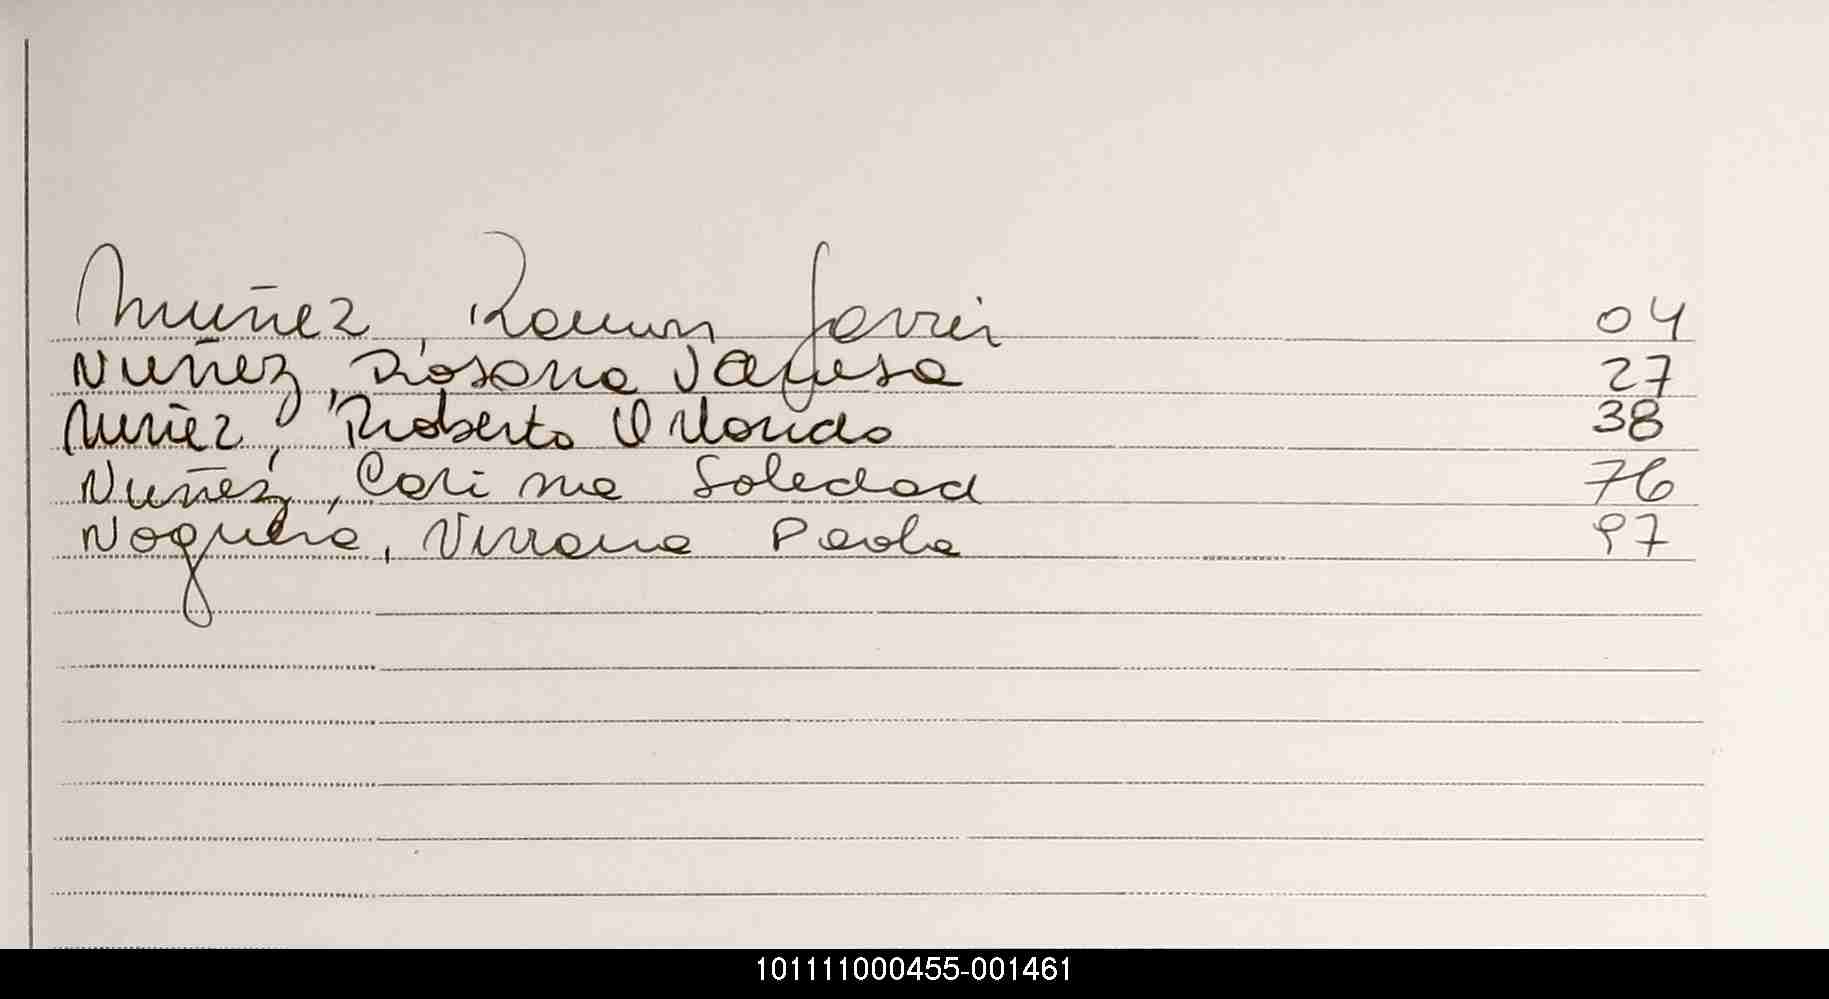 Nuñez, Ramon Javier 04
Nuñez, Rosana Vanesa 27
Nuñez, Roberto Orlando 38
Nuñez, Carina Soledad 76
Noguera, Viviana Paola 97
101111000455-001461